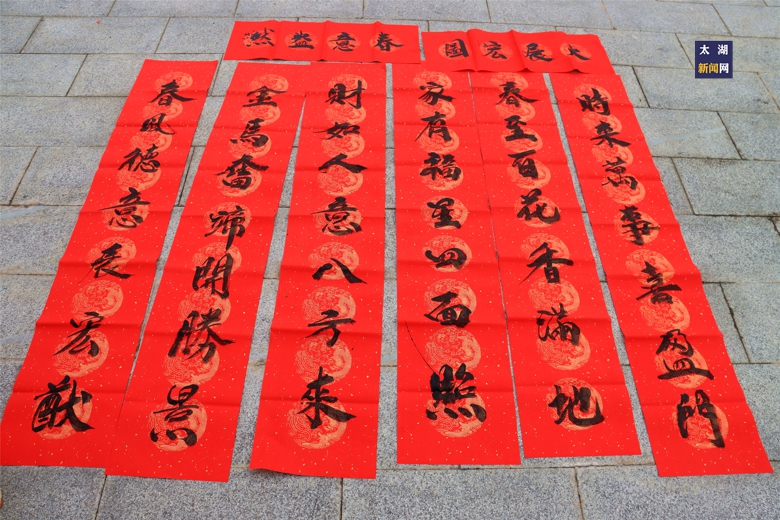 太湖
新闻网
大展宏圖
春意盎然
時来萬事喜盈門
春至百花香滿地
家有福星四面照
財如人意八方來
金馬奮蹄開勝景
春風德意展宏猷